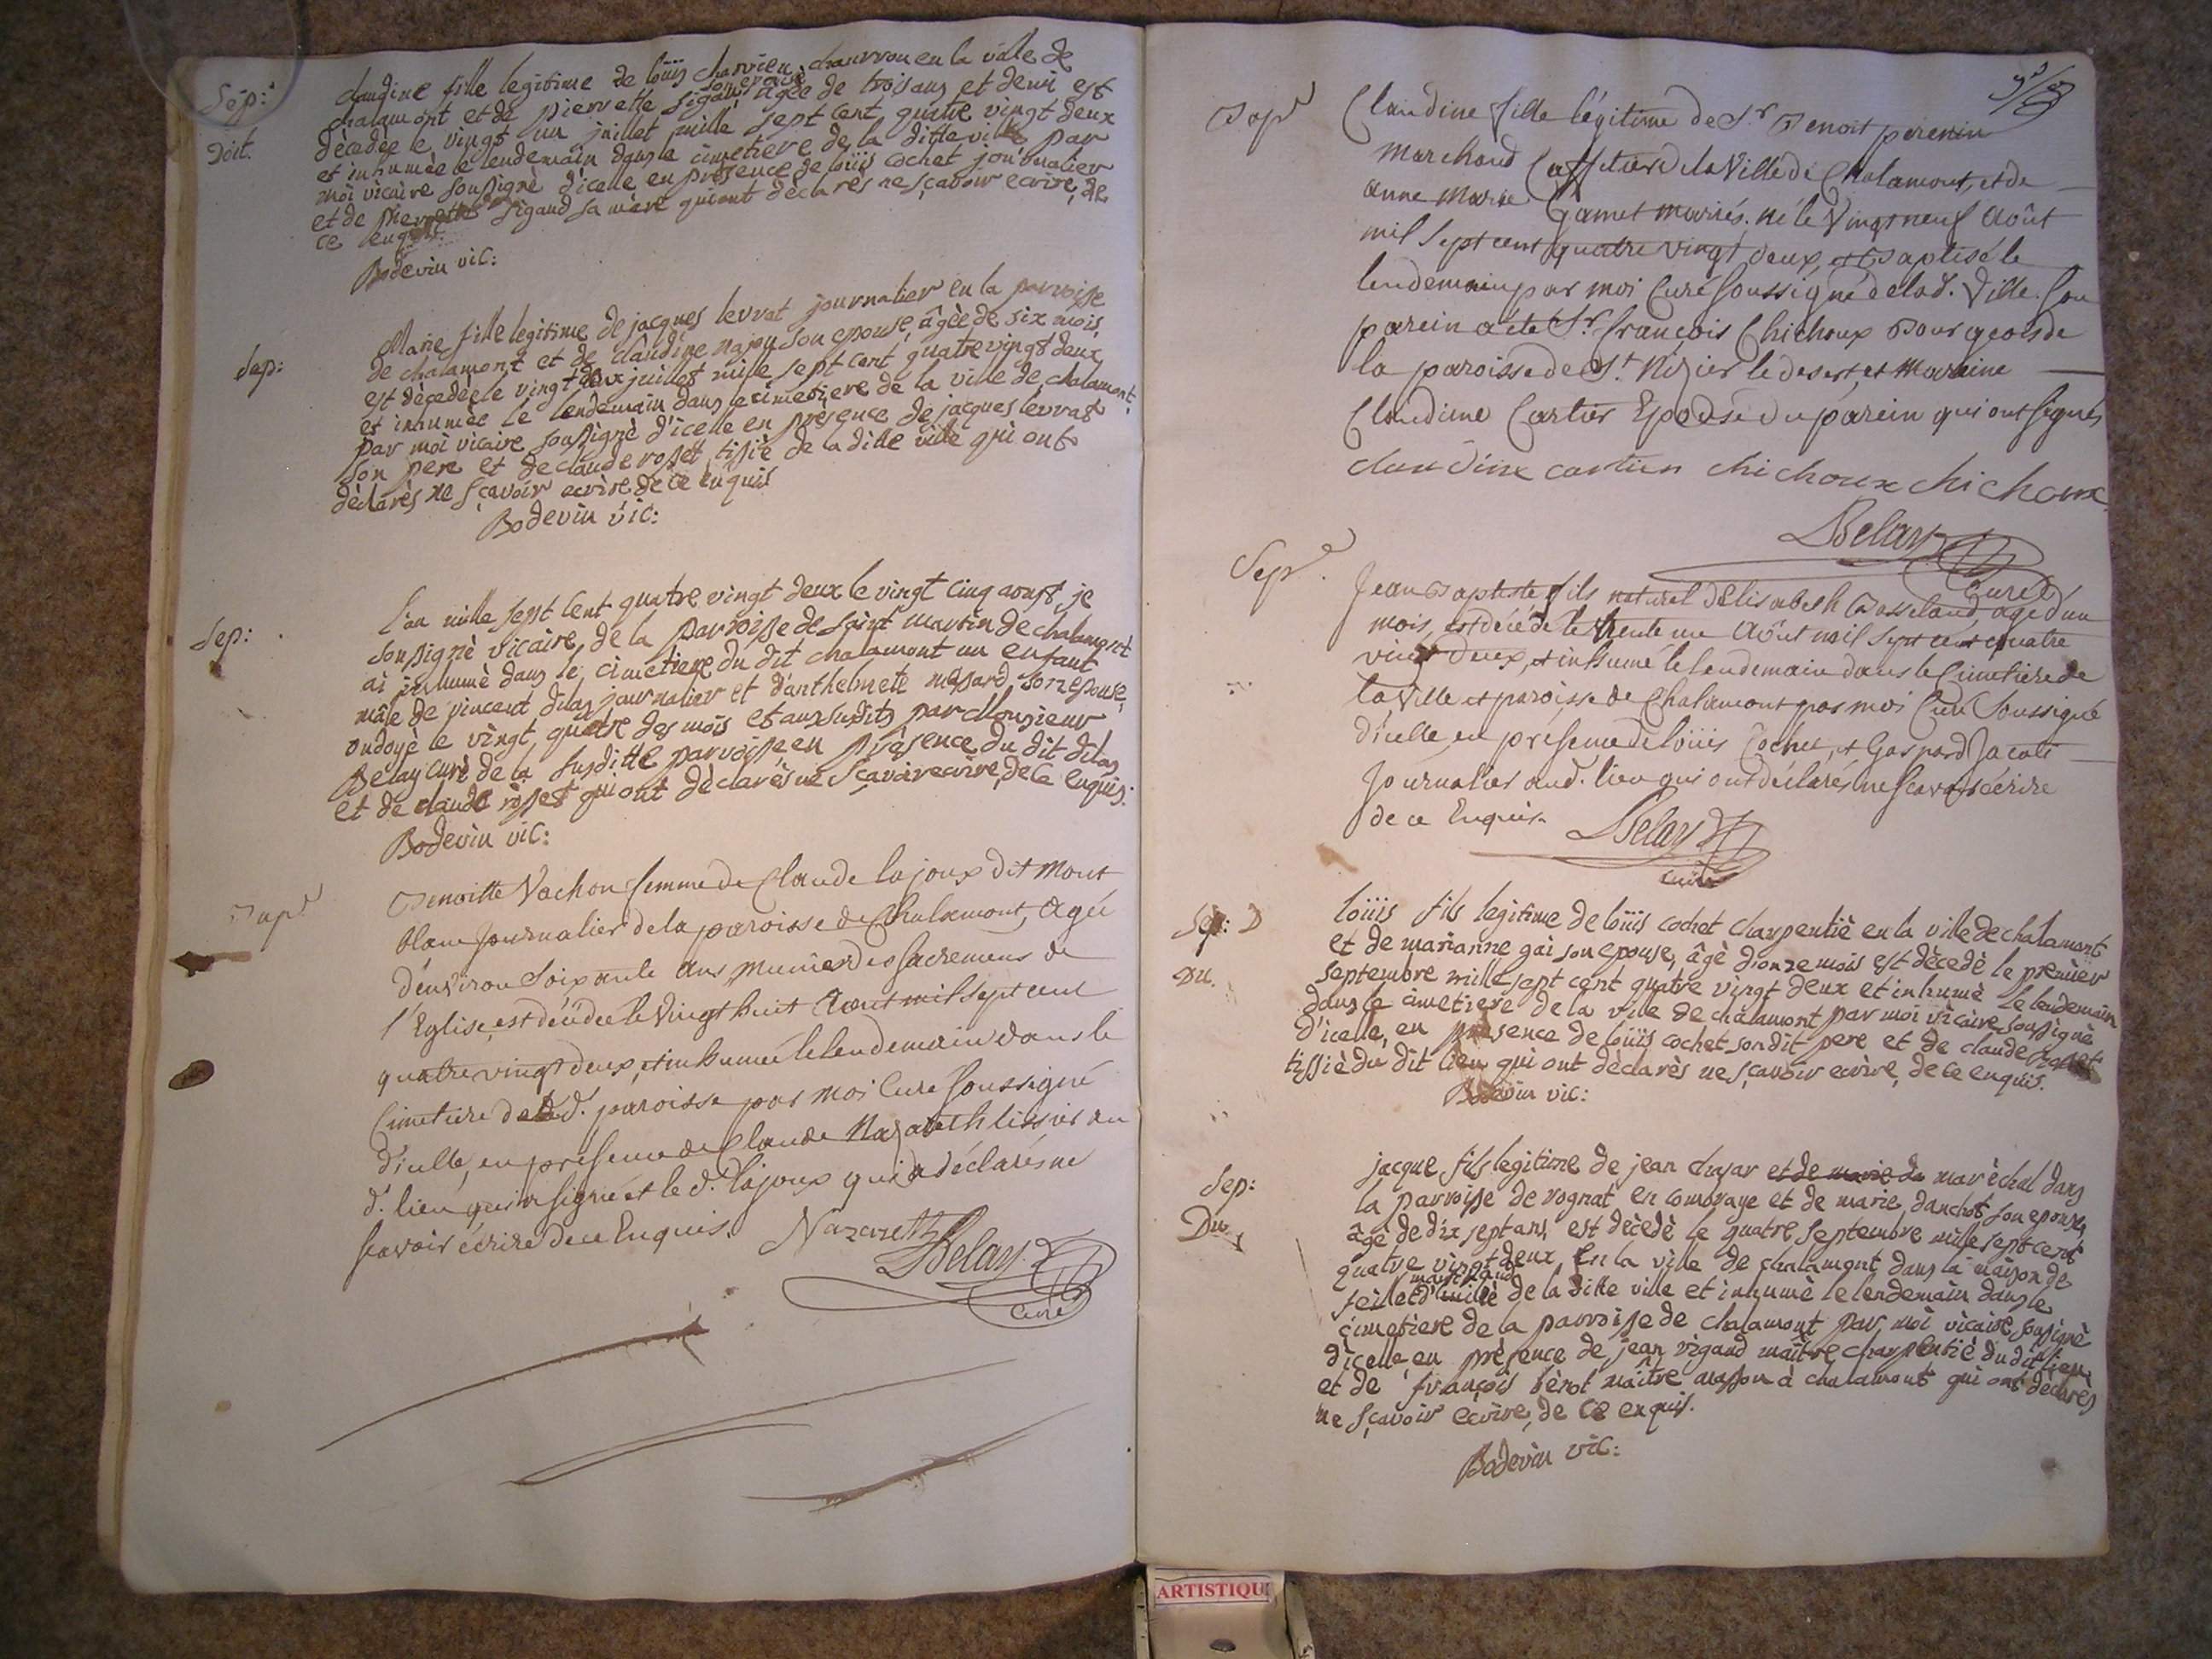 Sep:r
Doit.
claudine fille legitime de loüis charvieu chanvron en la ville de
chalamont et de pierrette sigaud son epouse âgée de trois ans et demi est
décedée le vingt un juillet mille sept cent quatre vingt deux
et inhumée le lendemain dans le cimetiere de la ditte ville par
moi vicaire soussigné d'icelle en présence de loüis cochet journalier
et de pierrette sigaud sa mere qui ont declarés ne sçavoir ecrire, de
ce enquis.
Bodevin vic:
Sep:
Marie fille legitime de jacques levrat journalier en la parroisse
de chalamont et de claudine najon son epouse, âgée de six mois,
est décedée le vingt deux juillet mille sept cent quatre vingt deux
et inhumée le lendemain dans le cimetiere de la ville de chalamont
par moi vicaire soussigné d'icelle en présence de jacques levrat
son pere et de claude rosset tissiè de la ditte ville qui ont
déclarés ne sçavoir ecrire de ce enquis
Bodevin vic:
Sep:
l'an mille sept cent quatre vingt deux le vingt cinq aoust, je
soussigné vicaire de la parroisse de saint martin de chalamont
ai inhumé dans le cimetiere du dit chalamont un enfant
mâle de vincent dilas journalier et d'anthelmette massard son epouse,
ondoyé le vingt quatre des mois et an susdits par Monsieur
Belay curé de la susditte parroisse, en présence du dit dilas
et de claude rosset qui ont déclarés ne sçavoir ecrire, de ce enquis.
Bodevin vic:
Bap.t
Benoitte Vachon femme de Claude lajoux dit Mont
blanc Journalier de la paroisse de Chalamont, agée
d'environ Soixante ans munie des sacremens de
l'Eglise, est décédée le Vingt huit Aout mil sept cent
quatre vingt deux, et inhumée le lendemain dans le
Cimetiere de lad. paroisse par moi Curé soussigné
d'icelle, en présence de Claude Nazareth tissier au
d. lieu qui a signé et le d. lajoux qui a déclaré ne
scavoir écrire de ce Enquis. Nazareth
Belay
Curé
Bap.t
Claudine fille légitime de S.r Benoit perenin
Marchand Caffetier de la Ville de Chalamont, et de
anne Marie Gamet mariés. né le Vingt neuf Août
mil sept cent quatre vingt deux, et Baptisé le
lendemain par moi Curé soussigné de lad. Ville. Son
parein a été S.r francois Chichoux Bourgeois de
la paroisse de S.t Nizier le desert, et Maraine
Claudine Cartier Epouse du parein qui ont signés
claudine cartier chichoux chichoux
Belay
Curé
Sep.r
Jean Baptiste fils naturel d'Elisabeth Rosseland, agé d'un
mois, est décédé le trente un Août mil sept cent quatre
vingt deux, et inhumé le lendemain dans le Cimetiere de
la Ville et paroisse de Chalamont par moi Curé Soussigné
d'icelle, en présence de loüis Cochet, et Gaspard Jacoti
Journalier aud. lieu qui ont déclarés ne scavoir écrire
de ce Enquis.
Belay
Curé
Sep: D
Du.
loüis fils legitime de loüis cochet charpentiè en la ville de chalamont
et de marianne gai son epouse, âgé d'onze mois est décedé le premier
septembre mille sept cent quatre vingt deux et inhumé le lendemain
dans le cimetiere de la ville de chalamont par moi vicaire soussigné
d'icelle, en présence de loüis cochet son dit pere et de claude rosset
tissiè du dit lieu qui ont déclarés ne sçavoir ecrire, de ce enquis.
Bodevin vic:
Sep:
Du.
jacque fils legitime de jean chazar et de marie da maréchal dans
la parroisse de rognat en combraye et de marie danchot son epouse,
âgé de dix sept ans, est décedé le quatre septembre mille sept cent
quatre vingt deux en la ville de chalamont dans la maison de
feillet marchand de la ditte ville et inhumé le lendemain dans le
cimetiere de la parroisse de chalamont par moi vicaire soussigné
d'icelle, en présence de jean vigaud maître charpentiè du dit lieu,
et de françois bérot maître masson à chalamont qui ont déclarés
ne sçavoir ecrire, de ce enquis.
Bodevin vic:
ARTISTIQU